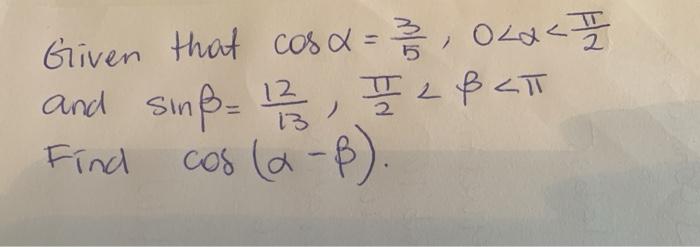 Given that cos α = 3/5, 0<α<π/2
and sinβ= 12/13, π/2 < β <π
Find cos (α - β).